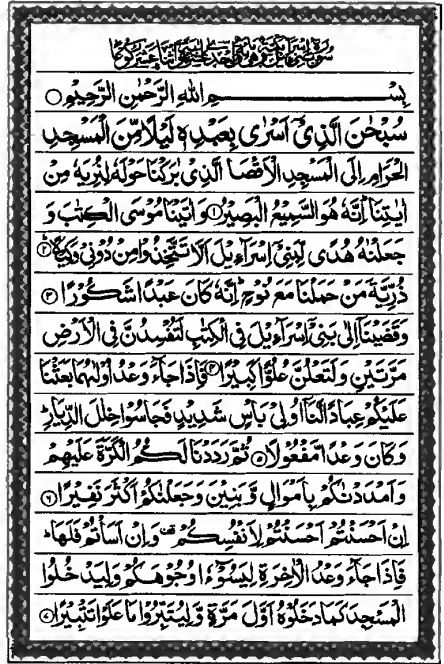 سورۃ بنی اسرآءیل مکیۃ وھی مائۃ واحدی عشرۃ اٰیۃ واثنا عشر رکوعا
بِسْــــــمِ اللهِ الرَّحْمٰنِ الرَّحِيْمِ ○
سُبْحٰنَ الَّذِیْۤ اَسْرٰی بِعَبْدِهٖ لَيْلًا مِّنَ الْمَسْجِدِ
الْحَرَامِ اِلَی الْمَسْجِدِ الْاَقْصَا الَّذِیْ بٰرَکْنَا حَوْلَهٗ لِنُرِيَهٗ مِنْ
اٰيٰتِنَا ؕ اِنَّهٗ هُوَ السَّمِيْعُ الْبَصِيْرُ ۱ وَ اٰتَيْنَا مُوْسَی الْکِتٰبَ وَ
جَعَلْنٰهُ هُدًی لِّبَنِیْۤ اِسْرَآءِيْلَ اَلَّا تَتَّخِذُوْا مِنْ دُوْنِیْ وَکِيْلًا ؕ ۲
ذُرِّيَّةَ مَنْ حَمَلْنَا مَعَ نُوْحٍ ؕ اِنَّهٗ کَانَ عَبْدًا شَکُوْرًا ۳
وَ قَضَيْنَاۤ اِلٰی بَنِیْۤ اِسْرَآءِيْلَ فِی الْکِتٰبِ لَتُفْسِدُنَّ فِی الْاَرْضِ
مَرَّتَيْنِ وَ لَتَعْلُنَّ عُلُوًّا کَبِيْرًا ۴ فَاِذَا جَآءَ وَعْدُ اُوْلٰىهُمَا بَعَثْنَا
عَلَيْکُمْ عِبَادًا لَّنَاۤ اُولِیْ بَاْسٍ شَدِيْدٍ فَجَاسُوْا خِلٰلَ الدِّيَارِ ؕ
وَ کَانَ وَعْدًا مَّفْعُوْلًا ۵ ثُمَّ رَدَدْنَا لَکُمُ الْکَرَّةَ عَلَيْهِمْ
وَ اَمْدَدْنٰکُمْ بِاَمْوَالٍ وَّ بَنِيْنَ وَ جَعَلْنٰکُمْ اَکْثَرَ نَفِيْرًا ۶
اِنْ اَحْسَنْتُمْ اَحْسَنْتُمْ لِاَنْفُسِکُمْ ۫ وَ اِنْ اَسَاْتُمْ فَلَهَا ؕ
فَاِذَا جَآءَ وَعْدُ الْاٰخِرَةِ لِيَسُوْٓءٗا وُجُوْهَکُمْ وَ لِيَدْخُلُوا
الْمَسْجِدَ کَمَا دَخَلُوْهُ اَوَّلَ مَرَّةٍ وَّ لِيُتَبِّرُوْا مَا عَلَوْا تَتْبِيْرًا ۷